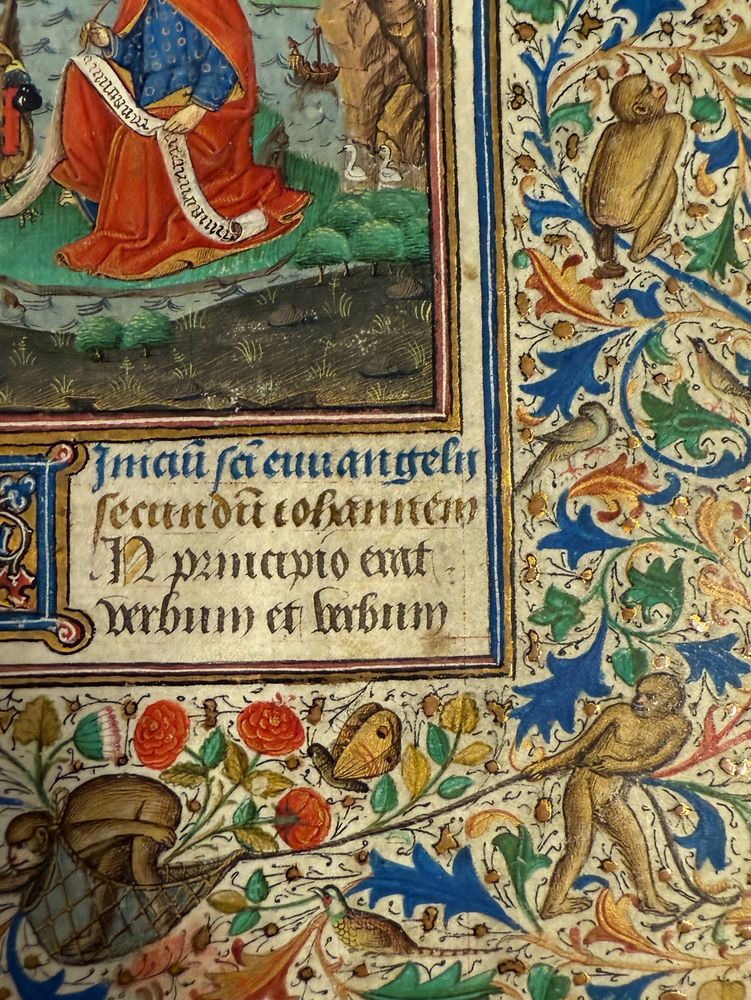 Iniciū sci̅ euuangelii
secundū iohannem
IN principio erat
verbum et verbum